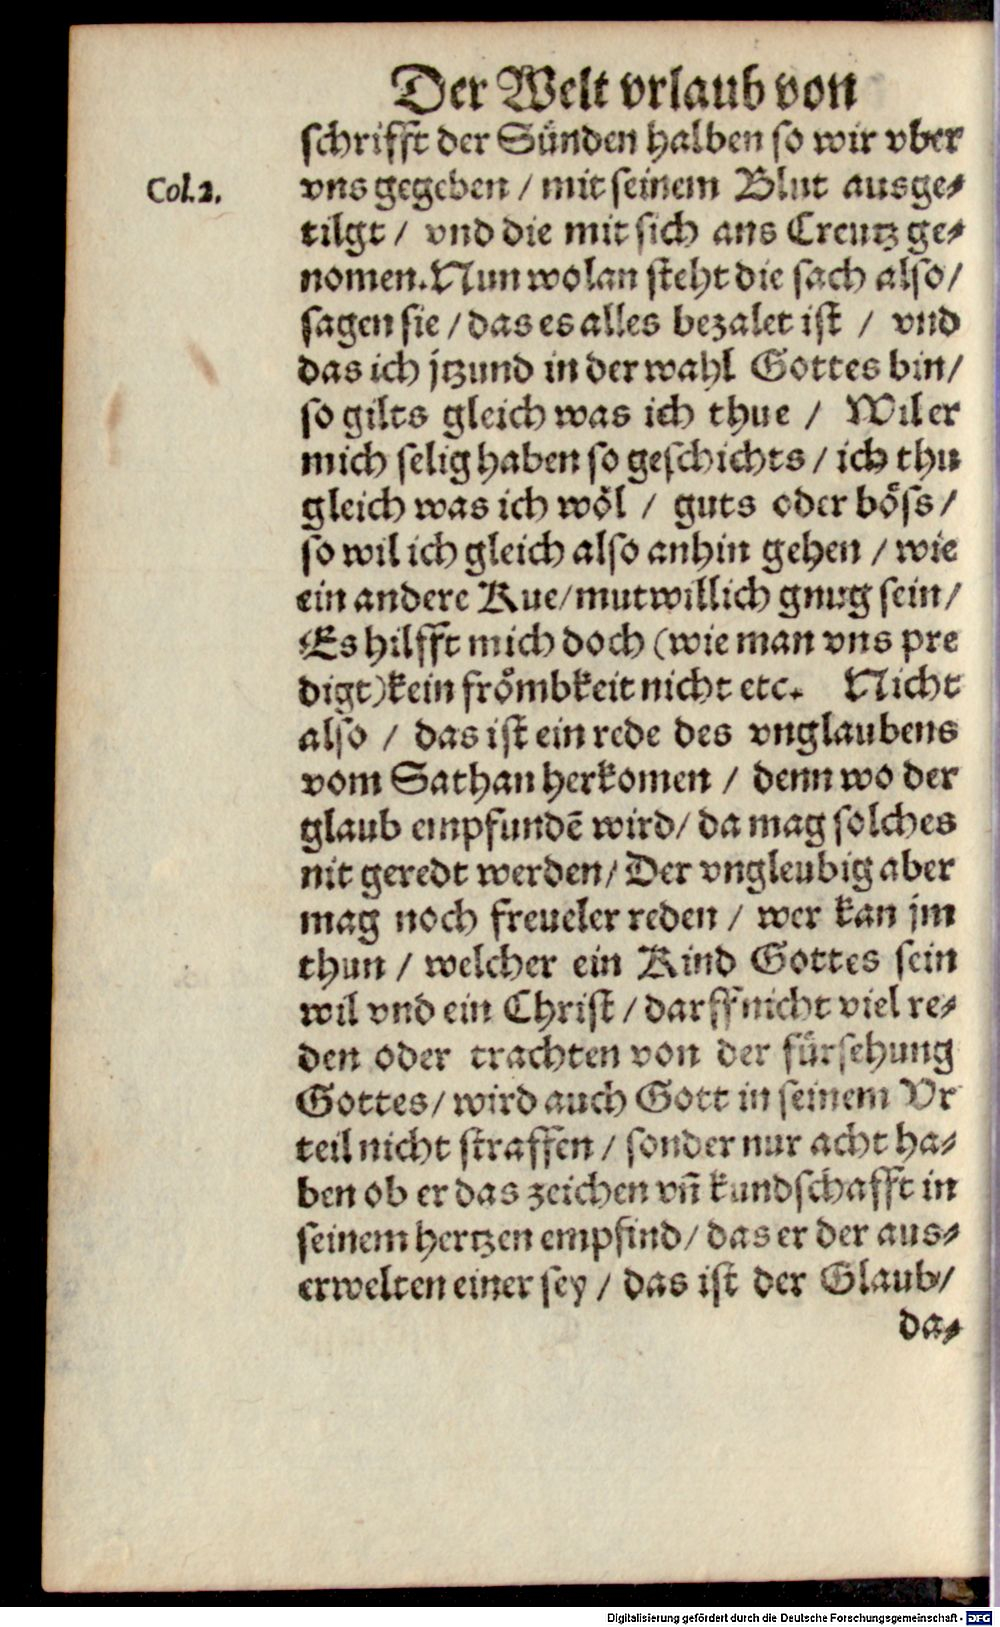 Der Welt vrlaub von
schrifft der Sünden halben so wir vber
Col. 2.
vns gegeben / mit seinem Blut ausge-
tilgt / vnd die mit sich ans Creutz ge-
nomen. Nun wolan steht die sach also /
sagen sie / das es alles bezalet ist / vnd
das ich jtzund in der wahl Gottes bin /
so gilts gleich was ich thue / Wil er
mich selig haben so geschichts / ich thu
gleich was ich wöl / guts oder böss /
so wil ich gleich also anhin gehen / wie
ein andere Kue / mutwillich gnug sein /
Es hilfft mich doch (wie man vns pre
digt) kein frömbkeit nicht etc. Nicht
also / das ist ein rede des vnglaubens
vom Sathan herkomen / denn wo der
glaub empfundē wird / da mag solches
nit geredt werden / Der vngleubig aber
mag noch freueler reden / wer kan jm
thun / welcher ein Kind Gottes sein
wil vnd ein Christ / darff nicht viel re-
den oder trachten von der fürsehung
Gottes / wird auch Gott in seinem Vr
teil nicht straffen / sonder nur acht ha-
ben ob er das zeichen vñ kundschafft in
seinem hertzen empfind / das er der aus-
erwelten einer sey / das ist der Glaub /
da-
Digitalisierung gefördert durch die Deutsche Forschungsgemeinschaft - DFG